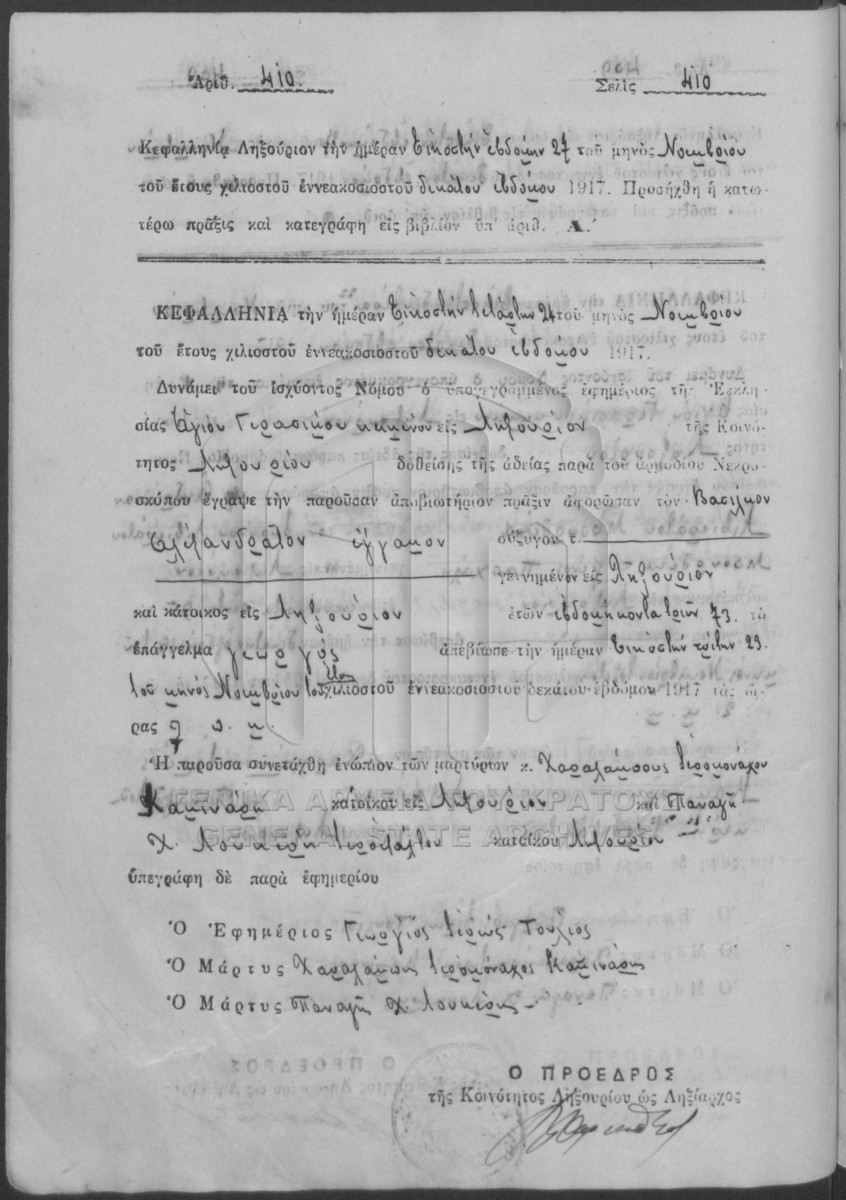 Ἀριθ. 410. Σελὶς 410
Κεφαλληνία Ληξούριον τὴν ἡμέραν Εἰκοστὴν ἑβδόμην 27 τοῦ μηνὸς Νοεμβρίου
τοῦ ἔτους χιλιοστοῦ ἐννεακοσιοστοῦ δεκάτου ἑβδόμου 1917. Προσήχθη ἡ κατω-
τέρω πρᾶξις καὶ κατεγράφη εἰς βιβλίον ὑπ' ἀριθ. Α.'
ΚΕΦΑΛΛΗΝΙΑ τὴν ἡμέραν Εἰκοστὴν τετάρτην 24 τοῦ μηνὸς Νοεμβρίου
τοῦ ἔτους χιλιοστοῦ ἐννεακοσιοστοῦ δεκάτου ἑβδόμου 1917.
Δυνάμει τοῦ ἰσχύοντος Νόμου ὁ ὑπογεγραμμένος ἐφημέριος τῆς Ἐκκλη-
σίας Ἁγίου Γερασίμου κειμένου εἰς Ληξούριον τῆς Κοινό-
τητος Ληξουρίου δοθείσης τῆς ἀδείας παρὰ τοῦ ἁρμοδίου Νεκρο-
σκόπου ἔγραψε τὴν παροῦσαν ἀποβιωτήριον πρᾶξιν ἀφορῶσαν τὸν Βασίλειον
Ἀλεξανδράτον ἔγγαμον σύζυγον τ.
γεννημένον εἰς Ληξούριον
καὶ κάτοικος εἰς Ληξούριον ἐτῶν ἑβδομήκοντα τριῶν 73. τὸ
ἐπάγγελμα γεωργὸς ἀπεβίωσε τὴν ἡμέραν Εἰκοστὴν τρίτην 23.
τοῦ μηνὸς Νοεμβρίου τοῦ ἔτους χιλιοστοῦ ἐννεακοσιοστοῦ δεκάτου ἑβδόμου 1917 τὰς ὥ-
ρας 9 π. μ.
Ἡ παροῦσα συνετάχθη ἐνώπιον τῶν μαρτύρων κ. Χαραλάμπους ἱερομονάχου
Καμινάρη κατοίκου εἰς Ληξούριον καὶ Παναγῆ
Χ. Λουκέρη ἱεροψάλτου κατοίκου Ληξουρίου
ὑπεγράφη δὲ παρὰ ἐφημερίου
Ὁ Ἐφημέριος Γεώργιος ἱερεὺς Τουλιος
Ὁ Μάρτυς Χαραλάμπης ἱερομόναχος Καμινάρης
Ὁ Μάρτυς Παναγῆς Χ. Λουκέρης
Ο ΠΡΟΕΔΡΟΣ
τῆς Κοινότητος Ληξουρίου ὡς Ληξίαρχος
ΓΕΝΙΚΑ ΑΡΧΕΙΑ ΤΟΥ ΚΡΑΤΟΥΣ
GENERAL STATE ARCHIVES